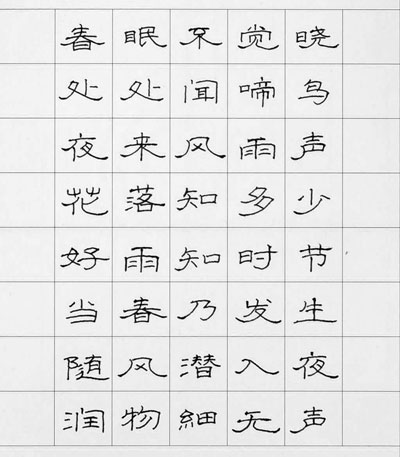 春眠不觉晓
处处闻啼鸟
夜来风雨声
花落知多少
好雨知时节
当春乃发生
随风潜入夜
润物細无声